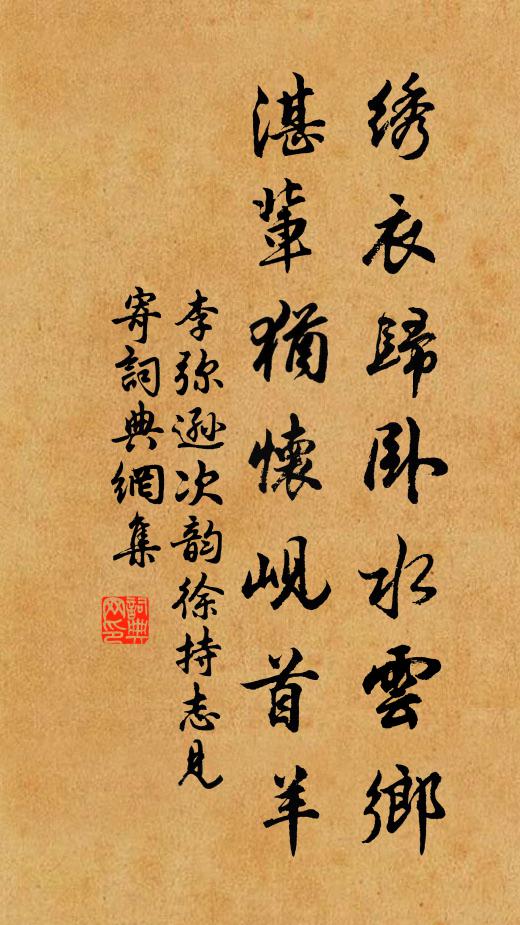 绣衣歸卧水雲鄉
湛輩猶懷峴首羊
李弥遜次韵徐持志見
寄詞典網集
詞典
网印